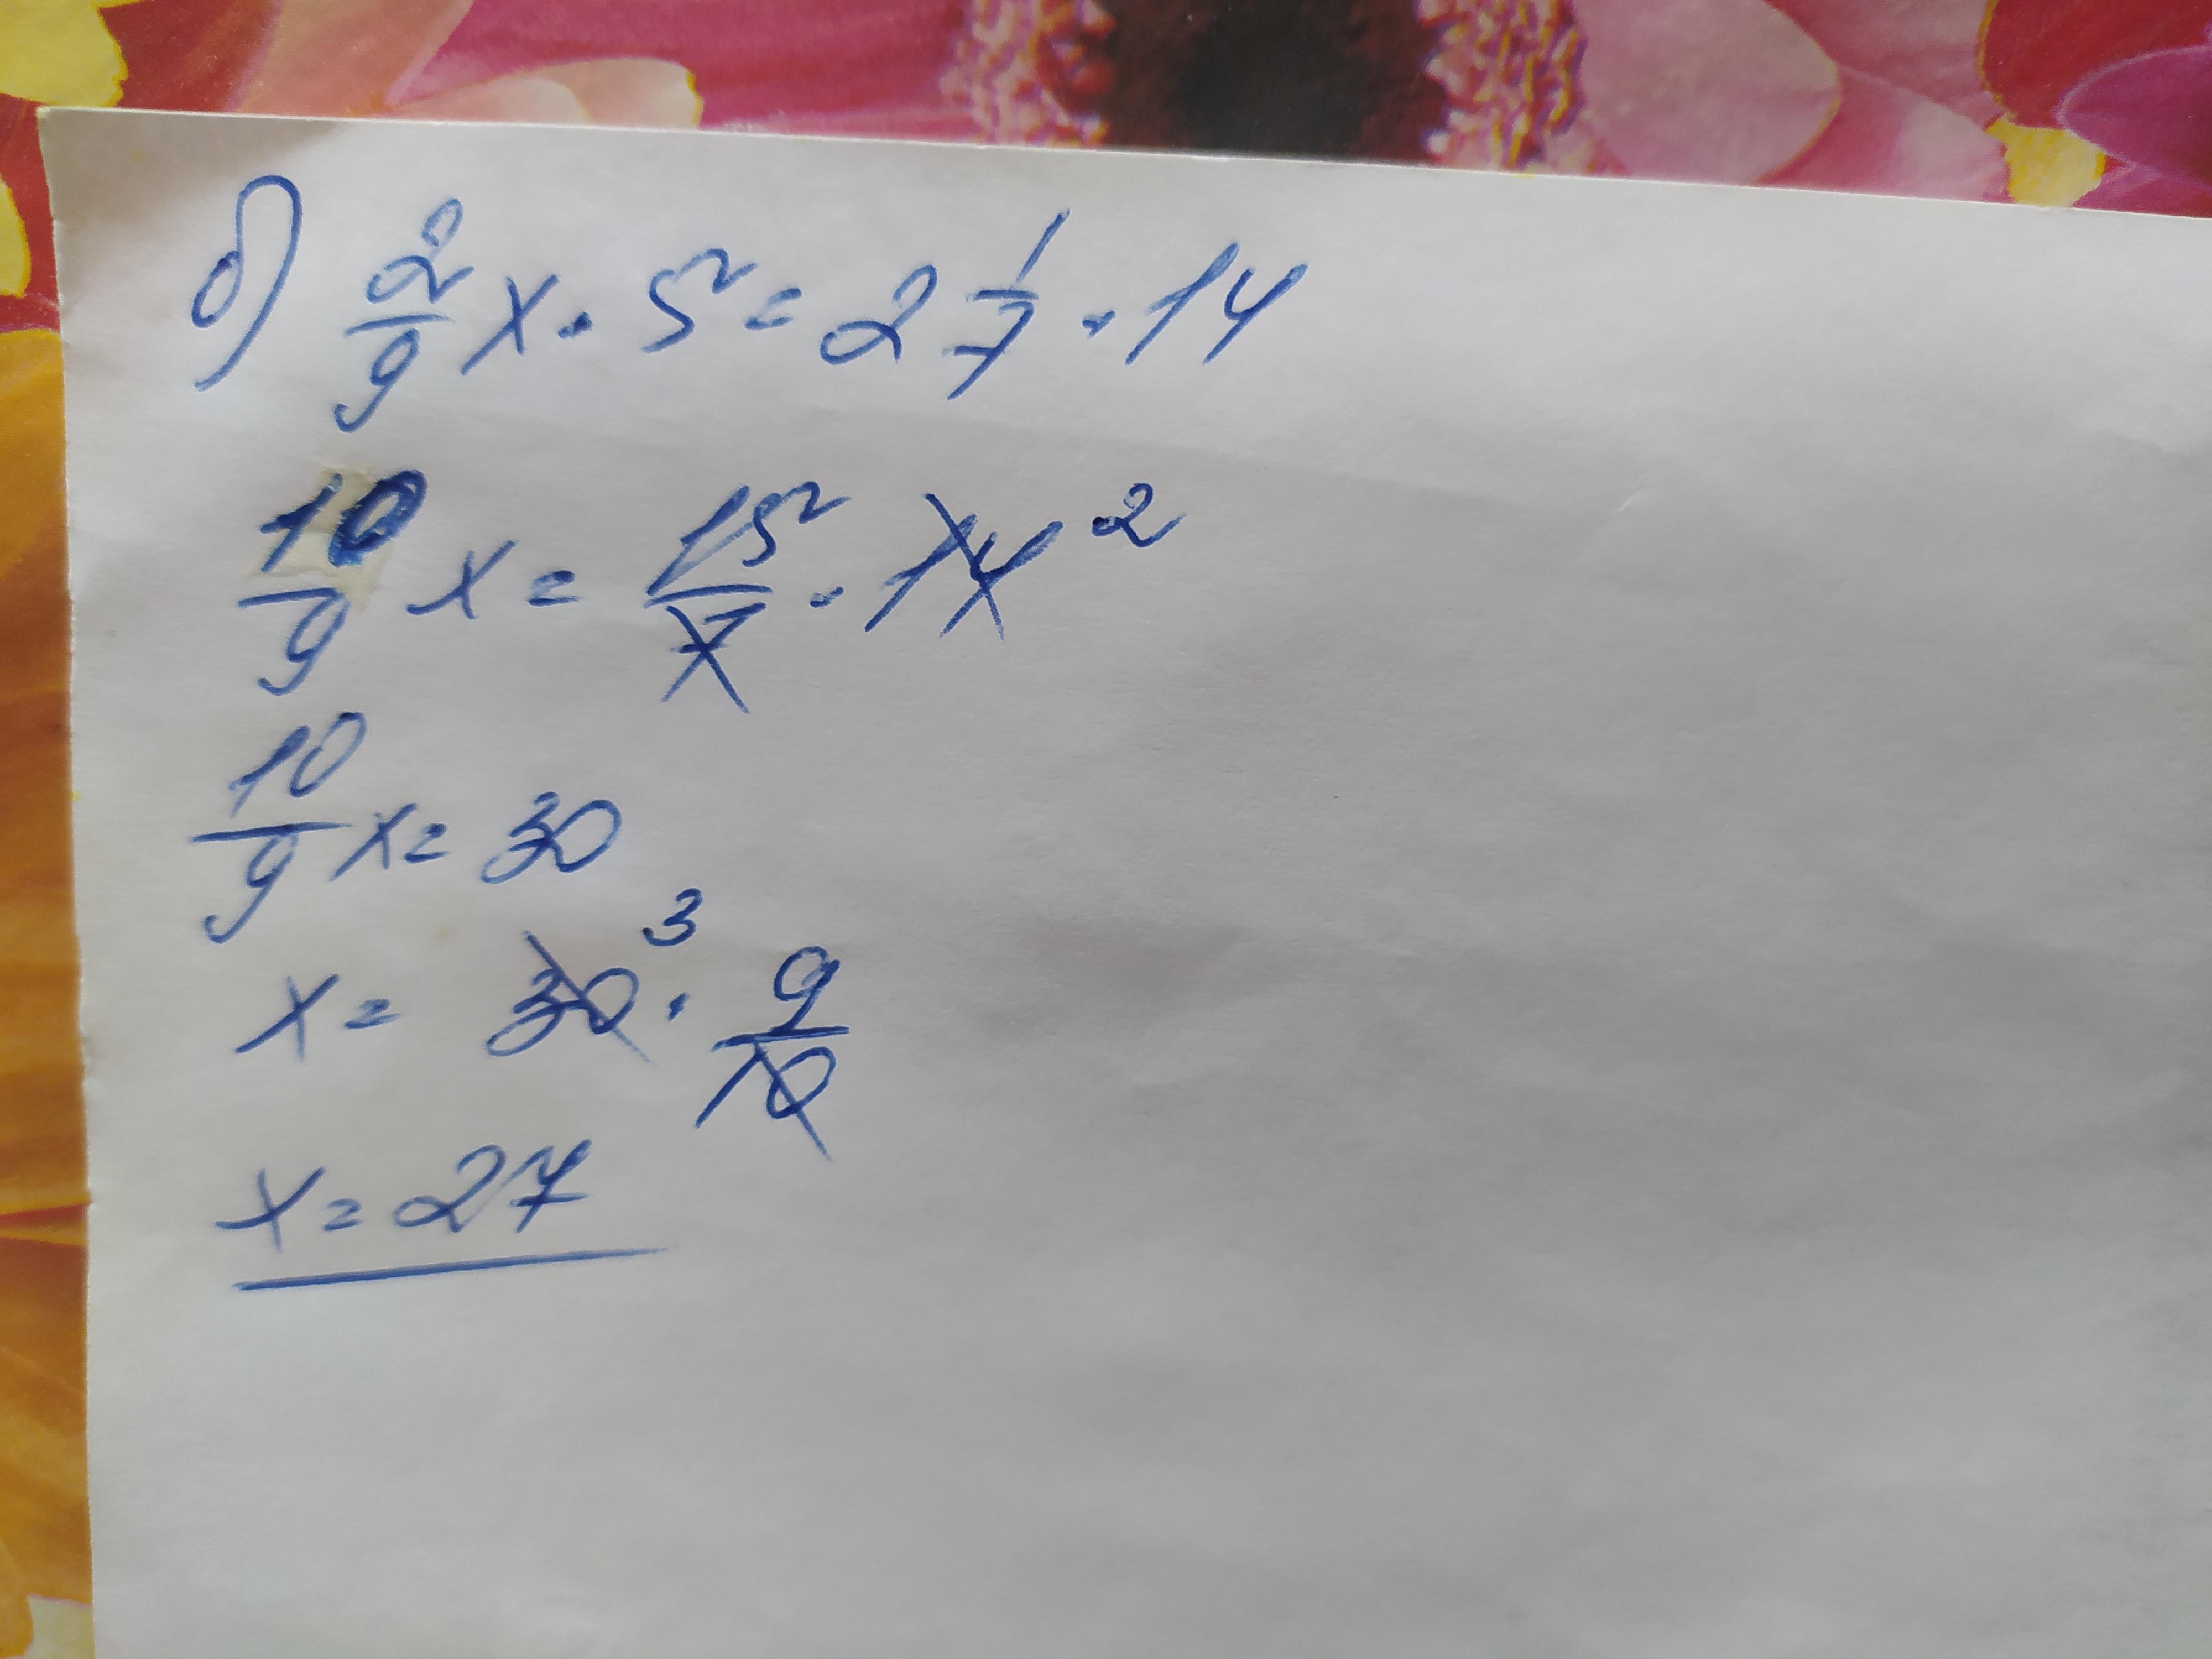 б) 2/9 x · 5 = 2 1/7 · 14
10/9 x = 15/7 · 14 2
10/9 x = 30
x = 30 3 · 9/10
x = 27